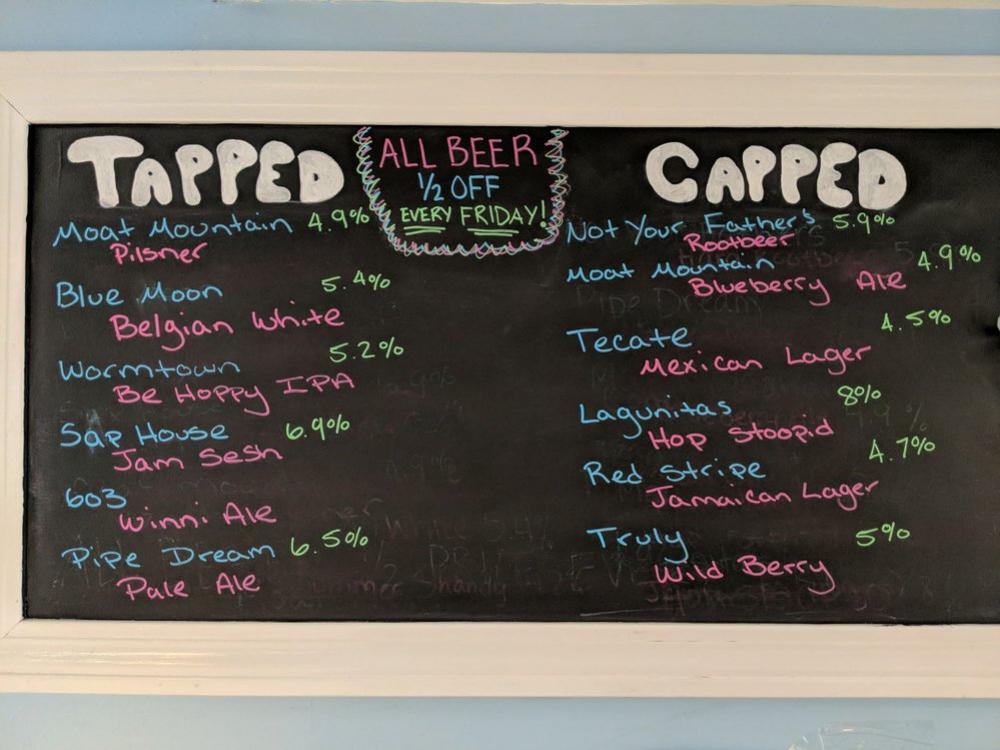 TAPPED
Moat Mountain 4.9%
Pilsner
Blue Moon 5.4%
Belgian White
Wormtown 5.2%
Be Hoppy IPA
Sap House 6.9%
Jam Sesh
603
Winni Ale
Pipe Dream 6.5%
Pale Ale
ALL BEER
1/2 OFF
EVERY FRIDAY!
CAPPED
Not Your Father's 5.9%
Rootbeer
Moat Mountain 4.9%
Blueberry Ale
Tecate 4.5%
Mexican Lager
Lagunitas 8%
Hop Stoopid
Red Stripe 4.7%
Jamaican Lager
Truly 5%
Wild Berry